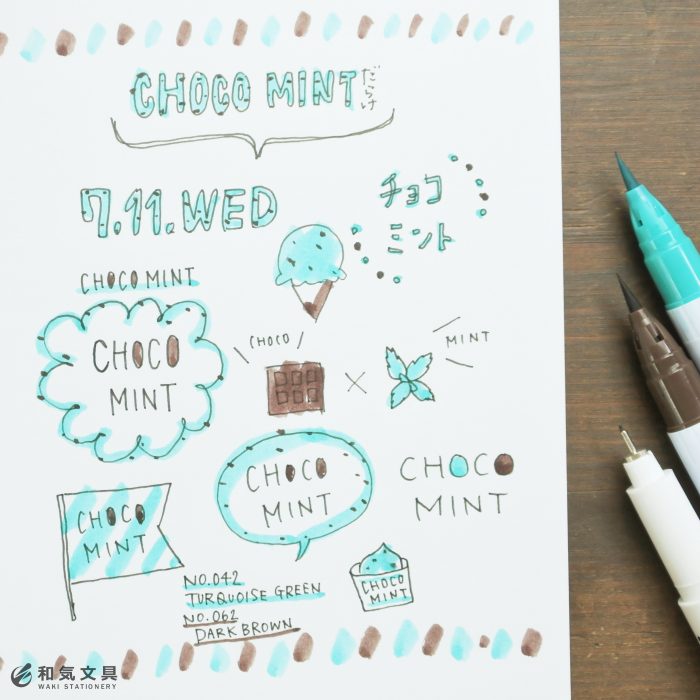 CHOCO MINT だらけ
7.11.WED
チョコ
ミント
CHOCO MINT
CHOCO
MINT
CHOCO
MINT
CHOCO
MINT
CHOCO
MINT
CHOCO
MINT
NO.042
TURQUOISE GREEN
NO.062
DARK BROWN
CHOCO
MINT
和気文具
WAKI STATIONERY